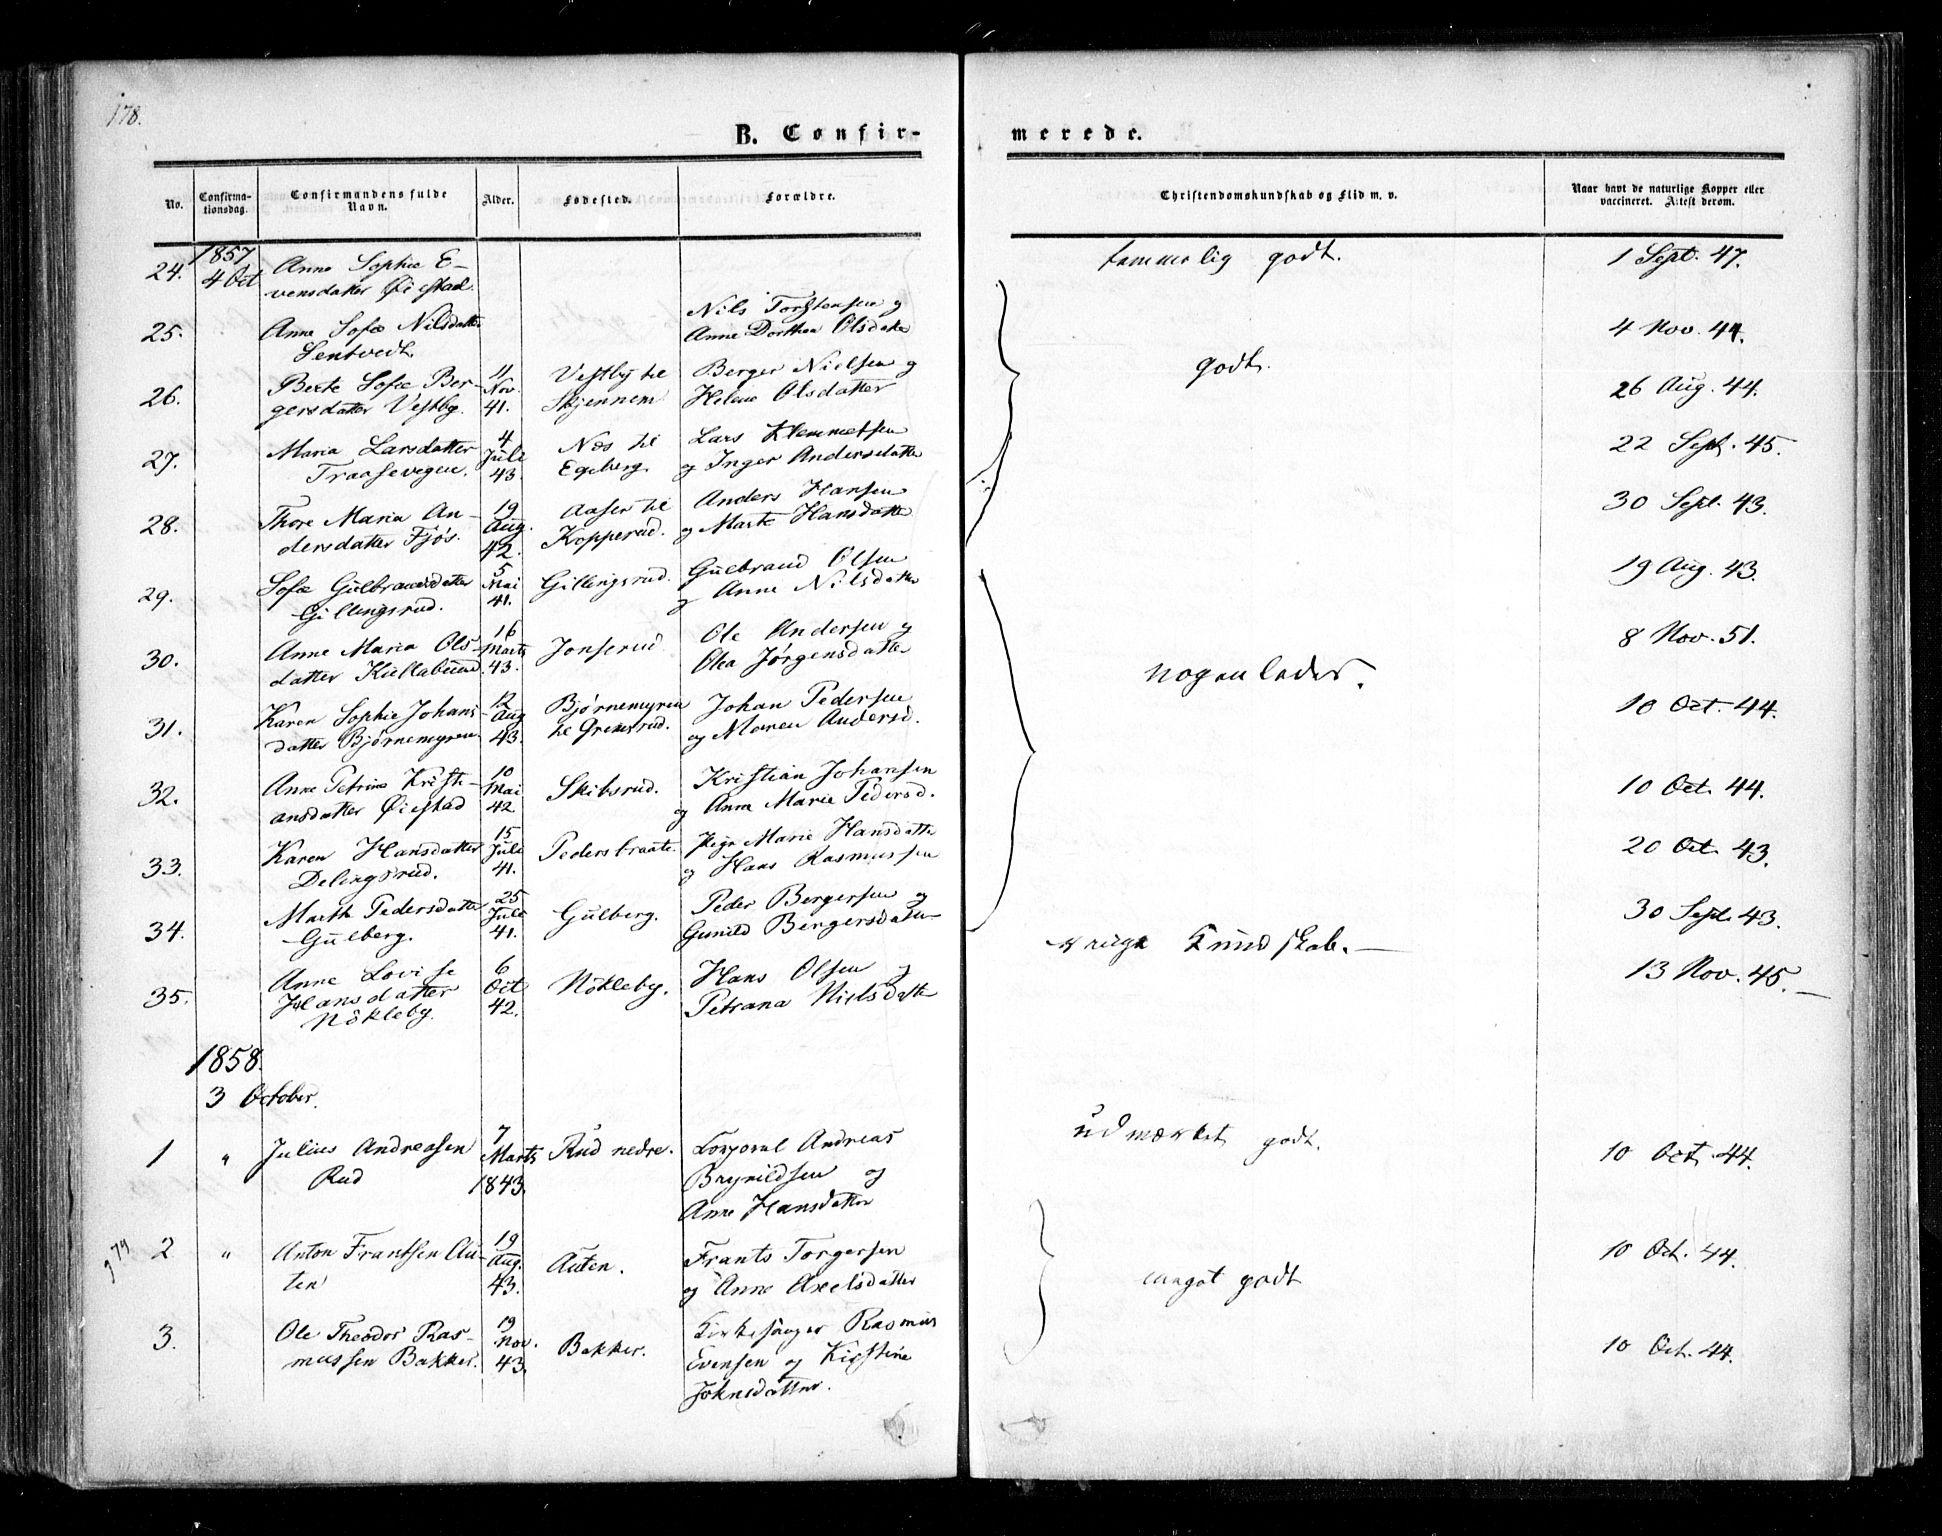 178.
B. Confir-
merede.
No.
Confirma-
tionsdag.
Confirmandens fulde
Navn.
Alder.
Fødested.
Forældre.
Christendomskundskab og Flid m. v.
Naar havt de naturlige Kopper eller
vaccineret. Attest derom.
1857
24. 4 Oct Anne Sophie E-
vensdatter Øiestad
temmelig godt. 1 Sept. 47.
25. Anne Sofie Nilsdatter
Sentvedt.
Nils Torstensen og
Anne Dorthea Olsdatter
4 Nov. 44.
26. Berte Sofie Ber-
gersdatter Vestby.
11
Nov.
41.
Vestby til
Skjennem
Berger Nielsen og
Helene Olsdatter
godt.
26 Aug. 44.
27. Maria Larsdatter
Traasevegen.
4
Juli
43.
Næs til
Egeberg.
Lars Klemmetsen
og Inger Andersdatter
22 Sept. 45.
28. Thore Maria An-
dersdatter Fjøs.
19
Aug.
42.
Aaser til
Kopperud.
Anders Hansen
og Marte Hansdatter
30 Sept. 43.
29. Sofie Gulbrandsdatter
Gillingsrud.
5
Mai
41.
Gillingsrud.
Gulbrand Olsen
og Anne Nilsdatter
19 Aug. 43.
30. Anne Maria Ols-
datter Kiellabund.
16
Marts
43.
Jonsrud
Ole Andersen og
Olea Jørgensdatter
nogenledes.
8 Nov. 51.
31. Karen Sophie Johans-
datter Bjørnemyren
12
Aug
43.
Bjørnemyren
til Grimsrud.
Johan Pedersen
og Maren Andersd.
10 Oct. 44.
32. Anne Petrine Kristi-
ansdatter Øiestad
10
Mai
42
Skibsrud.
Kristian Johansen
og Anne Marie Pedersd.
10 Oct. 44.
33. Karen Hansdatter
Delingsrud.
15
Juli
41.
Pedersbraate.
Pige Marie Hansdatter
og Hans Rasmussen
20 Oct. 43.
34. Marth Pedersdatter
Gulberg.
25
Juli
41.
Gulberg.
Peder Bergersen og
Gunild Bergersdatter
30 Sept. 43.
35. Anne Lovise
Hansdatter
Nökleby.
6
Oct
42.
Nökleby.
Hans Olsen og
Petrana Nielsdatter
ringe Kundskab.—
13 Nov. 45.—
1858.
3 October.
1 " Julius Andreasen
Rud
7
Marts
1843.
Rud nedre.
Korporal Andreas
Brynildsen og
Anne Hansdatter
udmærket godt.
10 Oct. 44.
2 " Anton Frantsen Au-
ten
19
Aug.
43.
Auten.
Frants Torgersen
og Anne Axelsdatter
meget godt
10 Oct. 44.
3. Ole Theodor Ras-
mussen Bakker.
19
Nov.
43.
Bakker.
Kirkesanger Rasmus
Evensen og Kirstine
Johnsdatter.
10 Oct. 44.